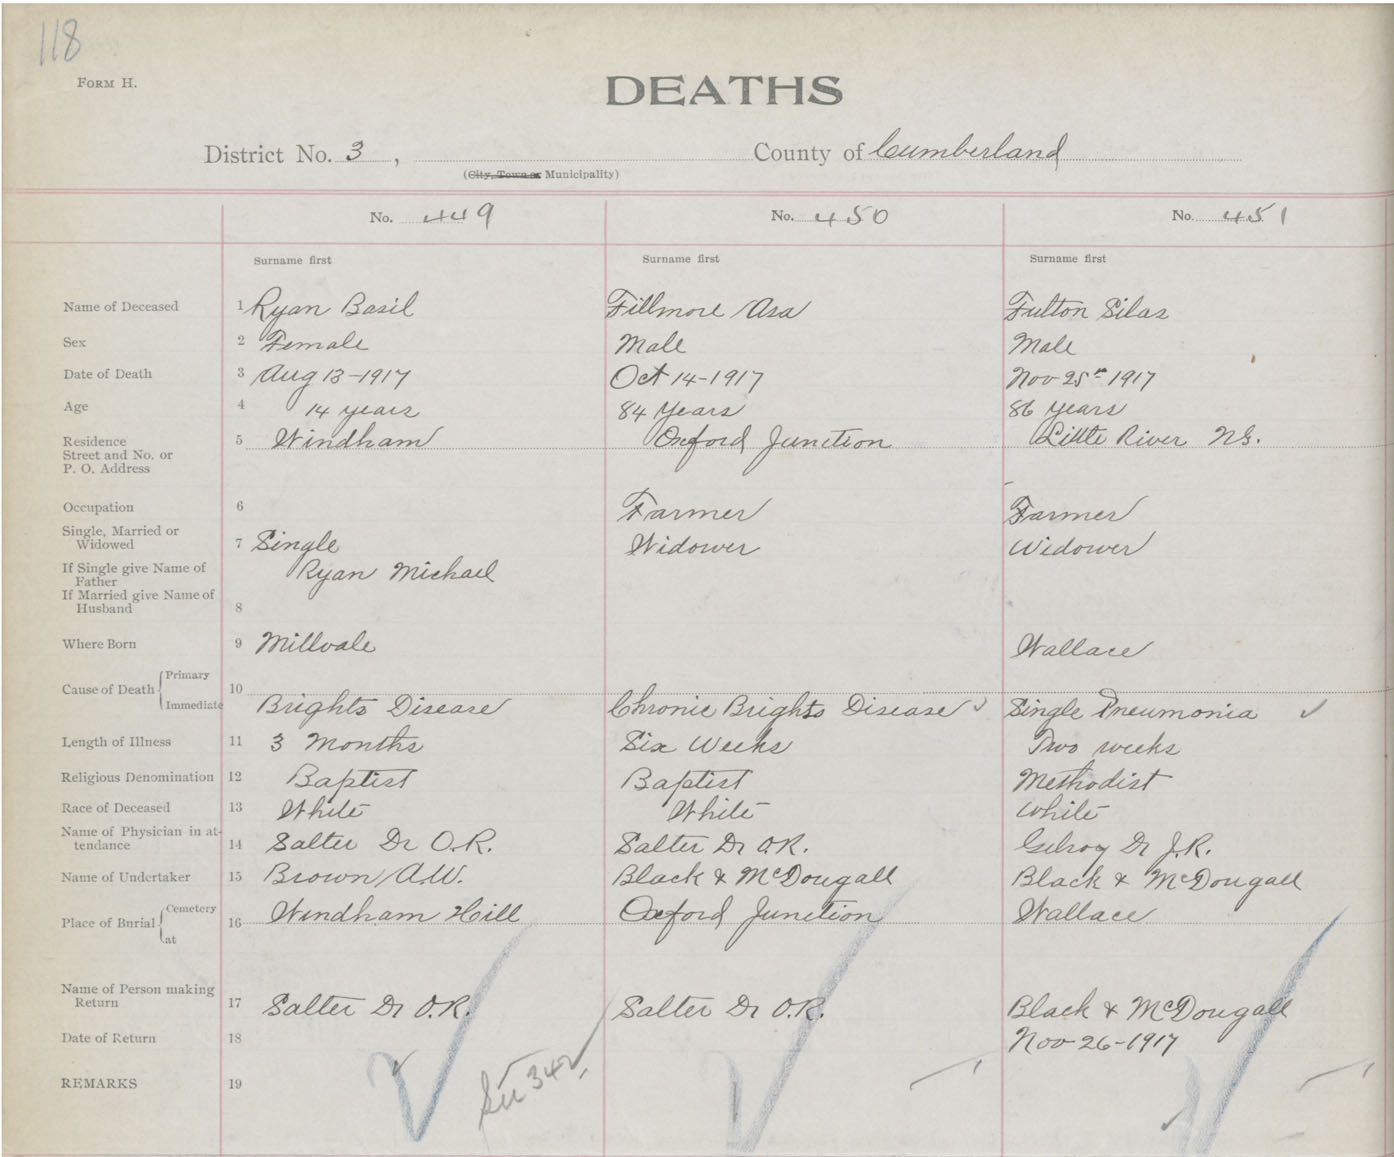 118
FORM H.
DEATHS
District No. 3 , County of Cumberland
(City, Town or Municipality)
No. 449 No. 450 No. 451
Surname first Surname first Surname first
Name of Deceased 1 Ryan Basil Fillmore Asa Fulton Silas
Sex 2 Female Male Male
Date of Death 3 Aug 13-1917 Oct 14-1917 Nov 25th 1917
Age 4 14 years 84 Years 86 years
Residence 5 Windham Oxford Junction Little River N.S.
Street and No. or
P. O. Address
Occupation 6 Farmer Farmer
Single, Married or
Widowed 7 Single Widower Widower
If Single give Name of Ryan Michael
Father
If Married give Name of
Husband 8
Where Born 9 Millvale Wallace
Cause of Death Primary 10
Immediate Brights Disease Chronic Brights Disease ✓ Single Pneumonia ✓
Length of Illness 11 3 Months Six Weeks Two weeks
Religious Denomination 12 Baptist Baptist Methodist
Race of Deceased 13 White White White
Name of Physician in at-
tendance 14 Salter Dr O.R. Salter Dr O.R. Gilroy Dr J.R.
Name of Undertaker 15 Brown A.W. Black & McDougall Black & McDougall
Place of Burial Cemetery 16 Windham Hill Oxford Junction Wallace
at
Name of Person making
Return 17 Salter Dr O.R. Salter Dr O.R. Black & McDougall
Date of Return 18 Nov-26-1917
REMARKS 19
342